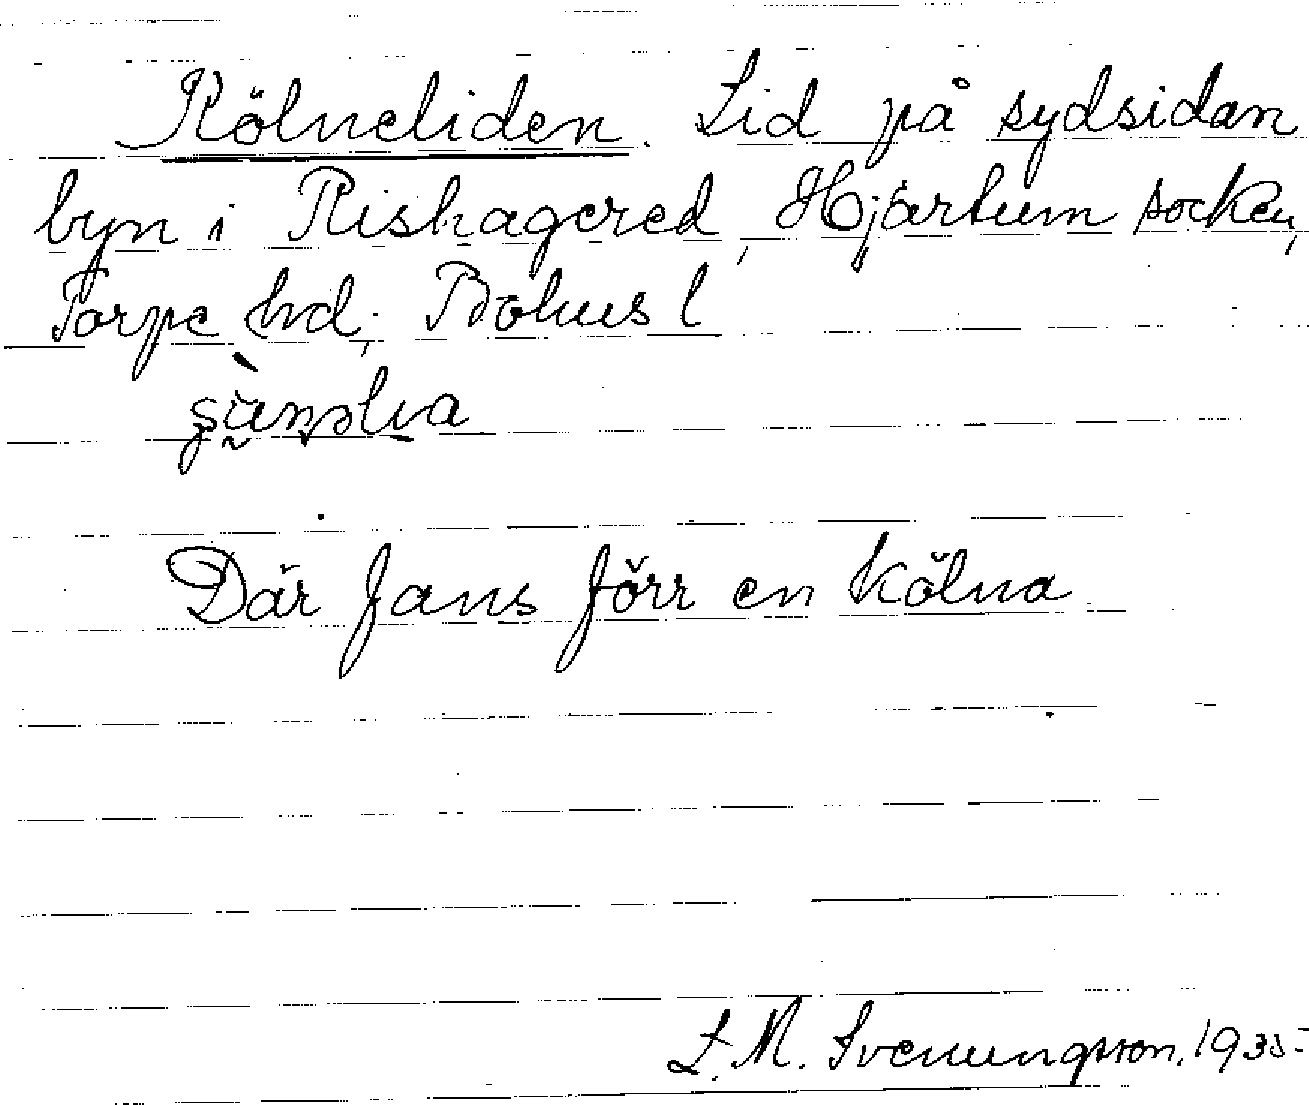 Kölneliden. Lid på sydsidan
byn i Rishagered, Hjärtum socken,
Torpe hd, Bohus l
Där fans förr en kölna
S. M. Svenungsson. 1935